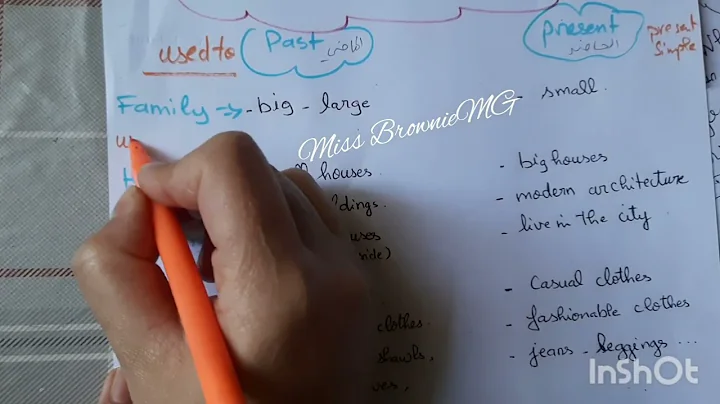 used to Past الماضي present الحاضر present simple
Family → - big - large - small.
Miss BrownieMG
houses. - big houses
- modern architecture
- live in the city
side)
- Casual clothes
clothes. - fashionable clothes
shawls, - jeans - leggings ...
InShOt